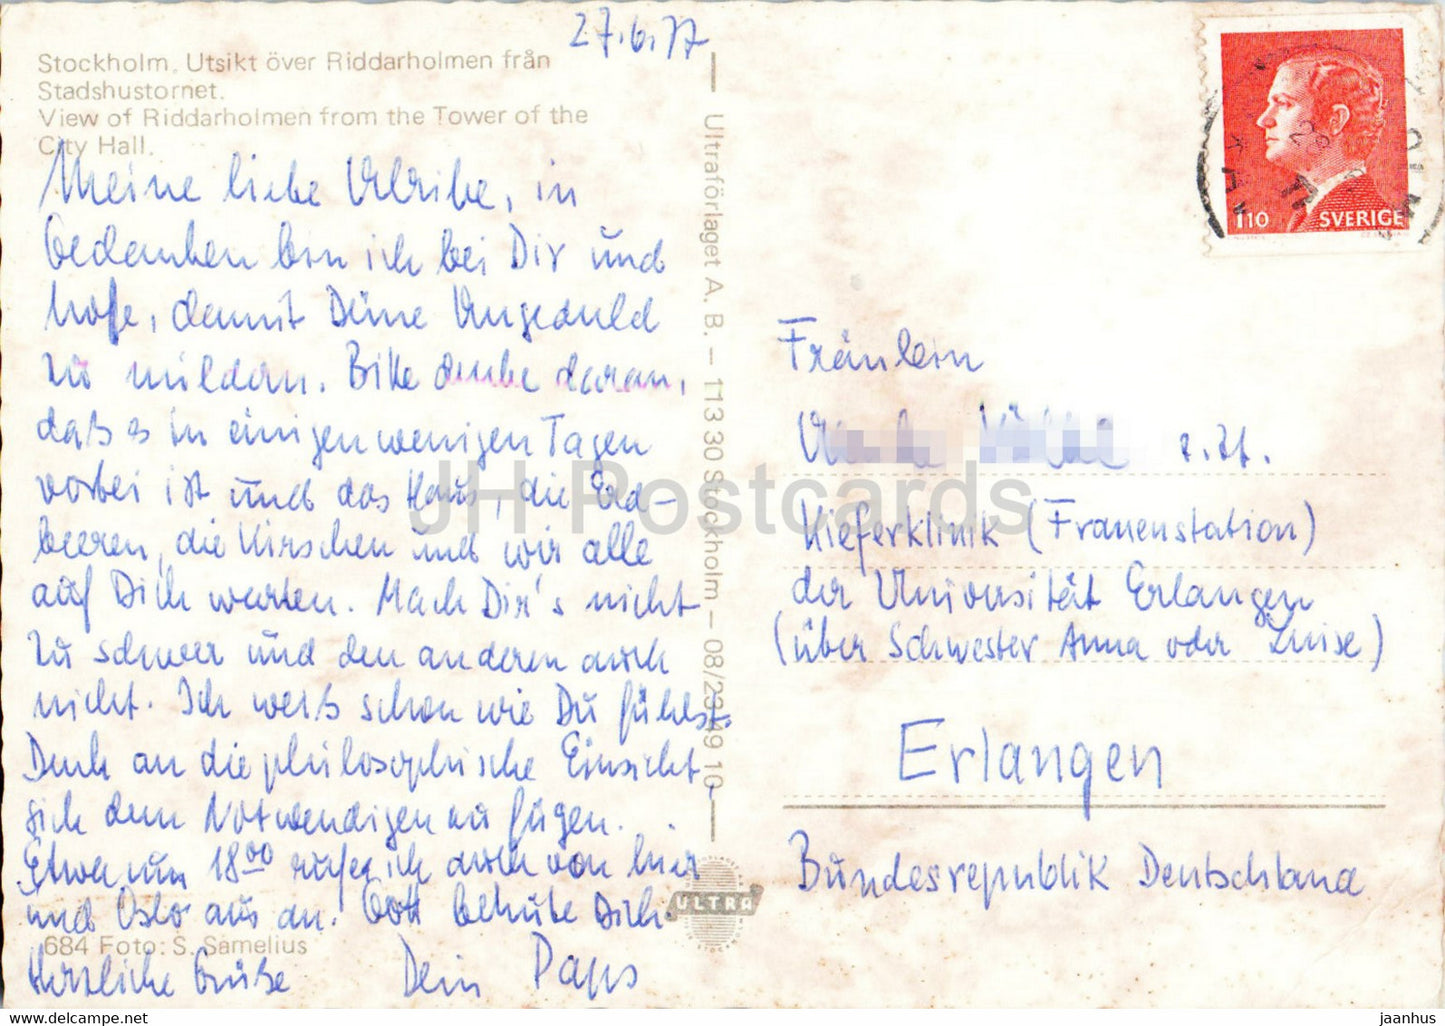 27.6.77
Stockholm. Utsikt över Riddarholmen från
Stadshustornet.
View of Riddarholmen from the Tower of the
City Hall.
Meine liebe Ulrike, in
Gedanken bin ich bei Dir und
hoffe, damit Deine Ungeduld
zu mildern. Bitte denke daran,
daß es in einigen wenigen Tagen
vorbei ist und das Haus, die Erd-
beeren, die Kirschen und wir alle
auf Dich warten. Mach Dir's nicht
zu schwer und den anderen auch
nicht. Ich weiß schon wie Du fühlst.
Denk an die philosophische Einsicht,
sich dem Notwendigen zu fügen.
Etwa um 18⁰⁰ rufe ich auch von hier
und Oslo aus an. Gott behüte Dich.
Herzliche Grüße Dein Paps
684 Foto: S. Samelius
Ultraförlaget A. B. – 113 30 Stockholm – 08/23 49 10
ULTRA
1 10 SVERIGE
Fräulein
z. Zt.
Kieferklinik (Frauenstation)
der Universität Erlangen
(über Schwester Anna oder Luise)
Erlangen
Bundesrepublik Deutschland
JH Postcards
hip-postcard.com
jaanhus